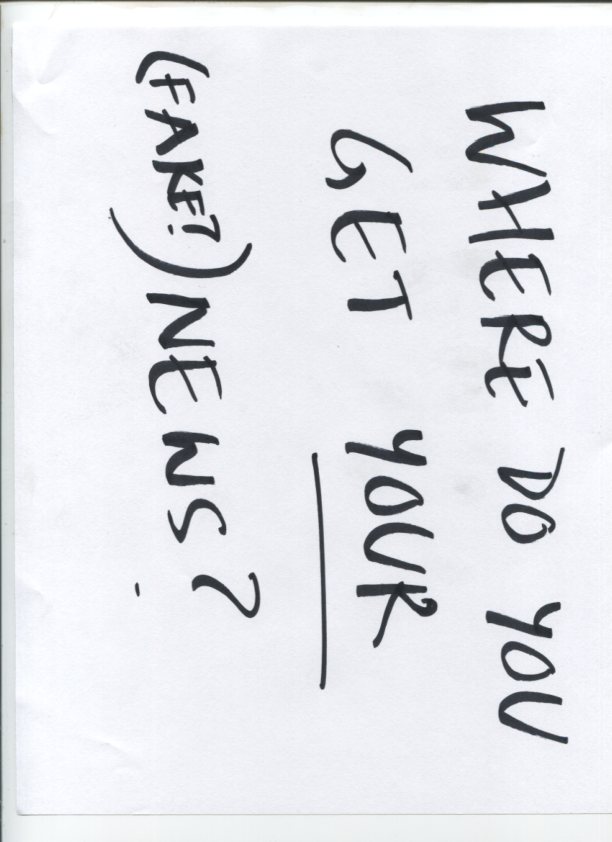 WHERE DO YOU
GET YOUR
(FAKE?) NEWS?